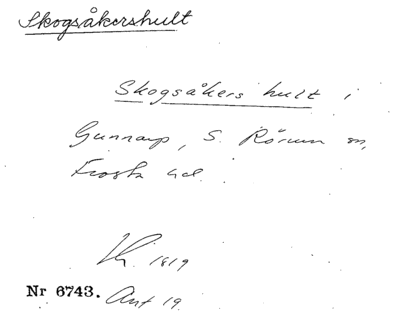 Skogsåkershult
Skogsåkers hult i
Gunnarp, S. Rörum sn,
Frosta hd.
1819
Nr 6743. Akt 19